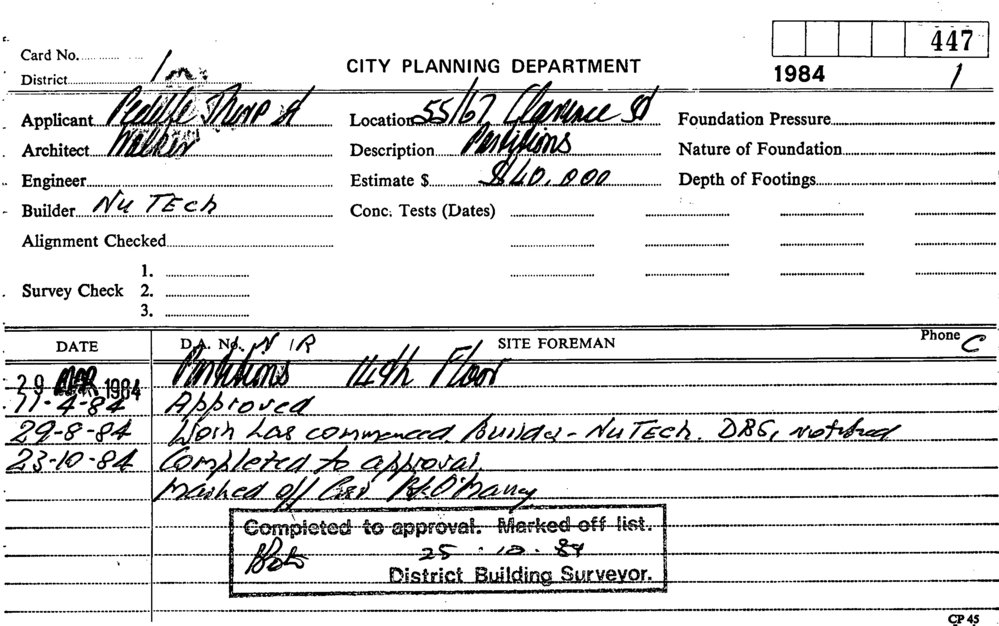 447
Card No.
CITY PLANNING DEPARTMENT
1984 1
District 1
Applicant Peddle Thorp & Location 55/67 Clarence St Foundation Pressure
Architect Walker Description Partitions Nature of Foundation
Engineer Estimate $ $40,000 Depth of Footings
Builder Nu Tech Conc. Tests (Dates)
Alignment Checked
1.
Survey Check 2.
3.
DATE D.A. No. N/R SITE FOREMAN Phone C
29 MAR 1984 Partitions 14th Floor
11-4-84 Approved
29-8-84 Work has commenced Builder - NuTech. DBS, notified
23-10-84 Completed to approval.
Marked off
Completed to approval. Marked off list.
25 . 10 . 84
District Building Surveyor.
CP 45